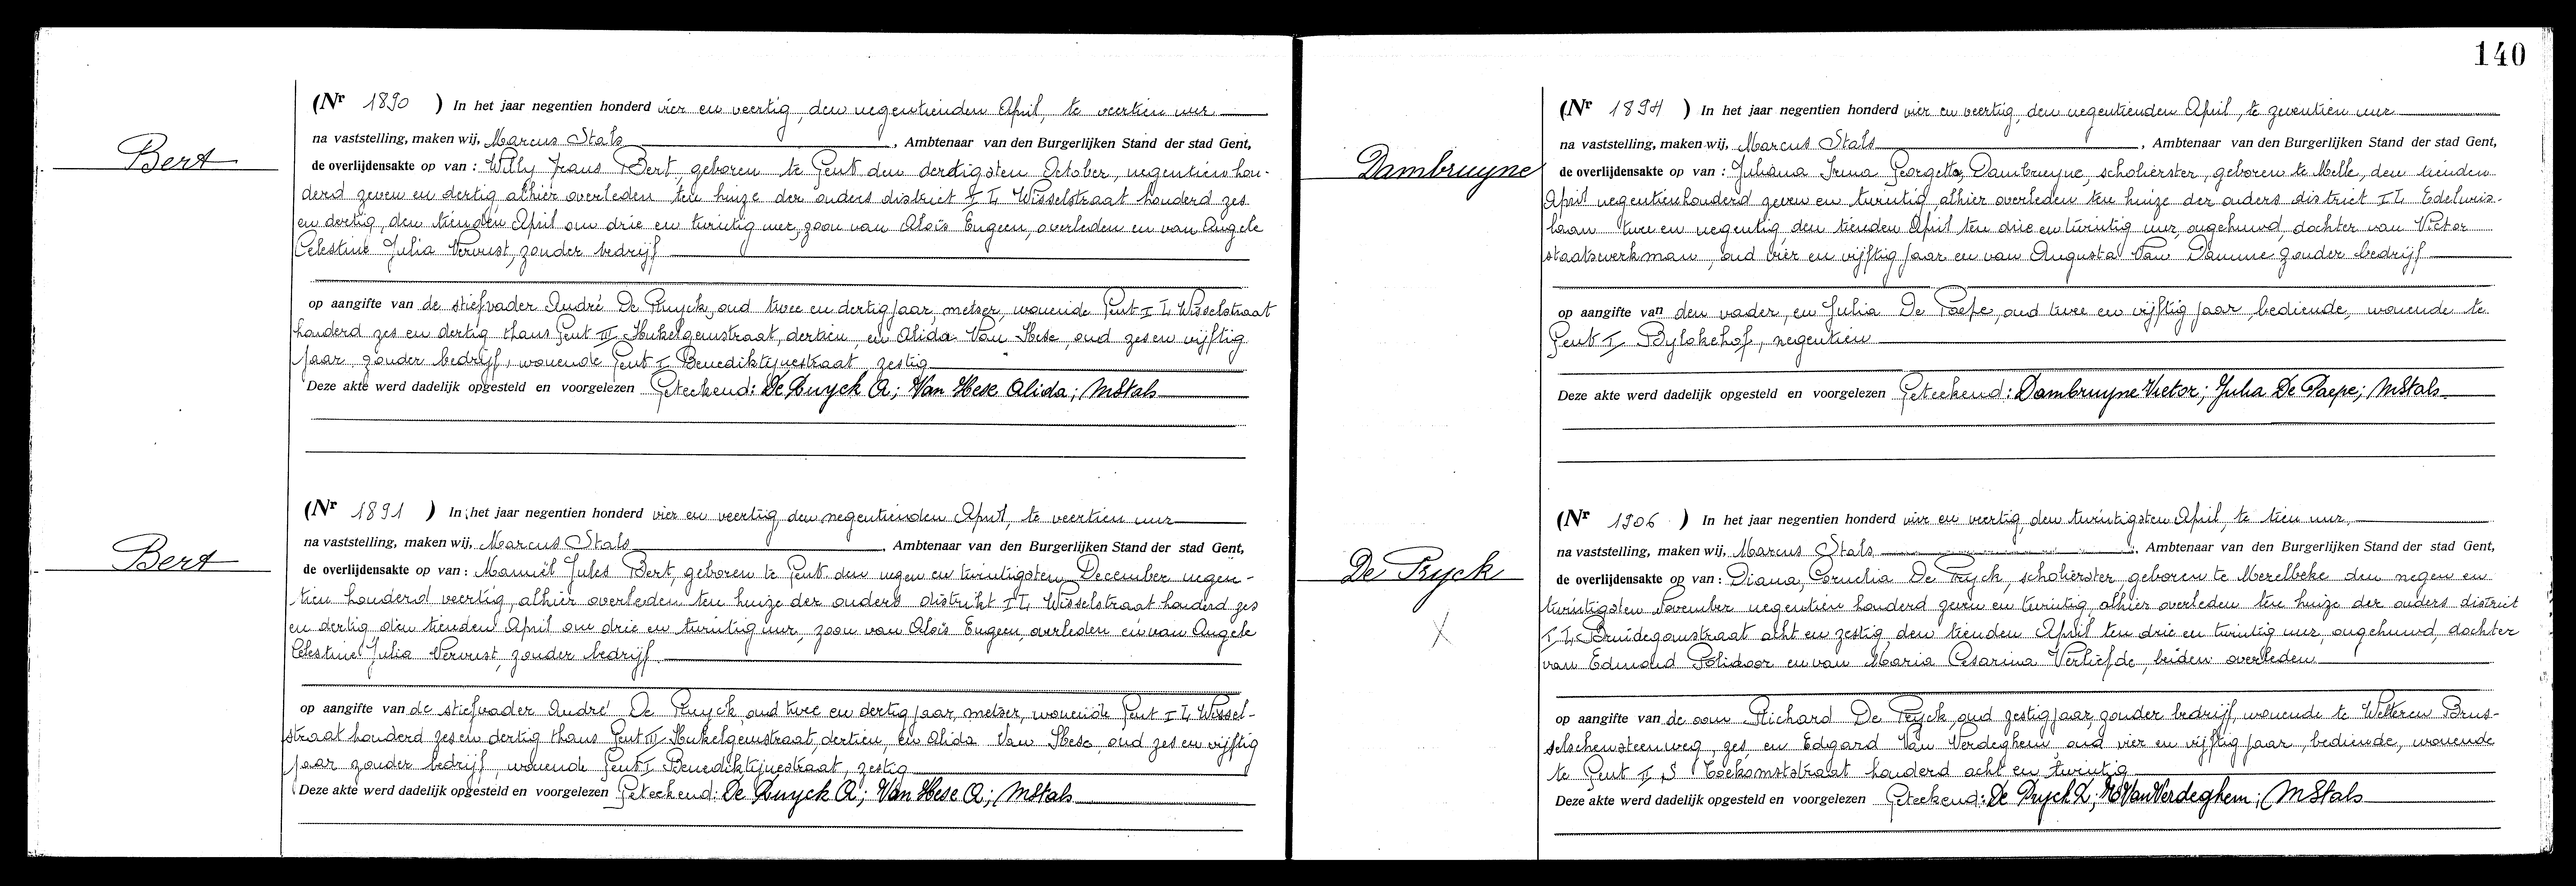 Bert
(Nr 1890 ) In het jaar negentien honderd vier en veertig, den negentienden April, te veertien uur
na vaststelling, maken wij, Marcus Stals , Ambtenaar van den Burgerlijken Stand der stad Gent,
de overlijdensakte op van : Willy Frans Bert, geboren te Gent den dertigsten October, negentien hon-
derd zeven en dertig, alhier overleden ten huize der ouders district I L Wisselstraat honderd zes
en dertig, den tienden April om drie en twintig uur, zoon van Aloïs Eugeen, overleden en van Angele
Celestine Julia Vervust, zonder bedrijf
op aangifte van de stiefvader André De Ruyck, oud twee en dertig jaar, metser, wonende Gent I L Wisselstraat
honderd zes en dertig thans Gent III Hukelgemstraat, dertien, en Alida Van Hese, oud zes en vijftig
jaar zonder bedrijf, wonende Gent I Benediktijnestraat, zestig
Deze akte werd dadelijk opgesteld en voorgelezen Geteekend: De Ruyck A; Van Hese Alida; MStals
Bert
(Nr 1891 ) In het jaar negentien honderd vier en veertig, den negentienden April, te veertien uur
na vaststelling, maken wij, Marcus Stals , Ambtenaar van den Burgerlijken Stand der stad Gent,
de overlijdensakte op van : Manuël Jules Bert, geboren te Gent den negen en twintigsten December negen-
tien honderd veertig, alhier overleden ten huize der ouders distrikt I L Wisselstraat honderd zes
en dertig den tienden April om drie en twintig uur, zoon van Aloïs Eugeen, overleden en van Angele
Celestine Julia Vervust, zonder bedrijf
op aangifte van de stiefvader André De Ruyck, oud twee en dertig jaar, metser, wonende Gent I L Wissel-
straat honderd zes en dertig thans Gent III Hukelgemstraat, dertien, en Alida Van Hese, oud zes en vijftig
jaar zonder bedrijf, wonende Gent I Benediktijnestraat, zestig
Deze akte werd dadelijk opgesteld en voorgelezen Geteekend: De Ruyck A; Van Hese A; MStals
140
Dambruyne
(Nr 1894 ) In het jaar negentien honderd vier en veertig, den negentienden April, te zeventien uur
na vaststelling, maken wij, Marcus Stals , Ambtenaar van den Burgerlijken Stand der stad Gent,
de overlijdensakte op van : Juliana Irma Georgette Dambruyne, scholierster, geboren te Melle, den
April negentienhonderd zeven en twintig alhier overleden ten huize der ouders district I L Edelweis-
laan twee en negentig, den tienden April ten drie en twintig uur, ongehuwd, dochter van Victor
staatswerkman, oud vier en vijftig jaar en van Augusta Van Damme zonder bedrijf
op aangifte van den vader, en Julia De Paepe, oud twee en vijftig jaar, bediende, wonende te
Gent I Bylokehof, negentien
Deze akte werd dadelijk opgesteld en voorgelezen Geteekend: Dambruyne Victor; Julia De Paepe; MStals
De Pryck
X
(Nr 1906 ) In het jaar negentien honderd vier en veertig, den twintigsten April, te tien uur,
na vaststelling, maken wij, Marcus Stals , Ambtenaar van den Burgerlijken Stand der stad Gent,
de overlijdensakte op van : Diana, Cornelia De Pryck, scholierster, geboren te Merelbeke den negen en
twintigsten November negentien honderd zeven en twintig, alhier overleden ten huize der ouders district
I L, Bruidegomstraat acht en zestig, den tienden April ten drie en twintig uur, ongehuwd, dochter
van Edmond Polidoor en van Maria Cesarina Verliefde, beiden overleden
op aangifte van de oom Richard De Pryck, oud zestig jaar, zonder bedrijf, wonende te Wetteren Brus-
selschensteenweg, zes, en Edgard Van Verdeghem, oud vier en vijftig jaar, bediende, wonende
te Gent II S Toekomststraat honderd acht en twintig
Deze akte werd dadelijk opgesteld en voorgelezen Geteekend: De Pryck R; Van Verdeghem; MStals